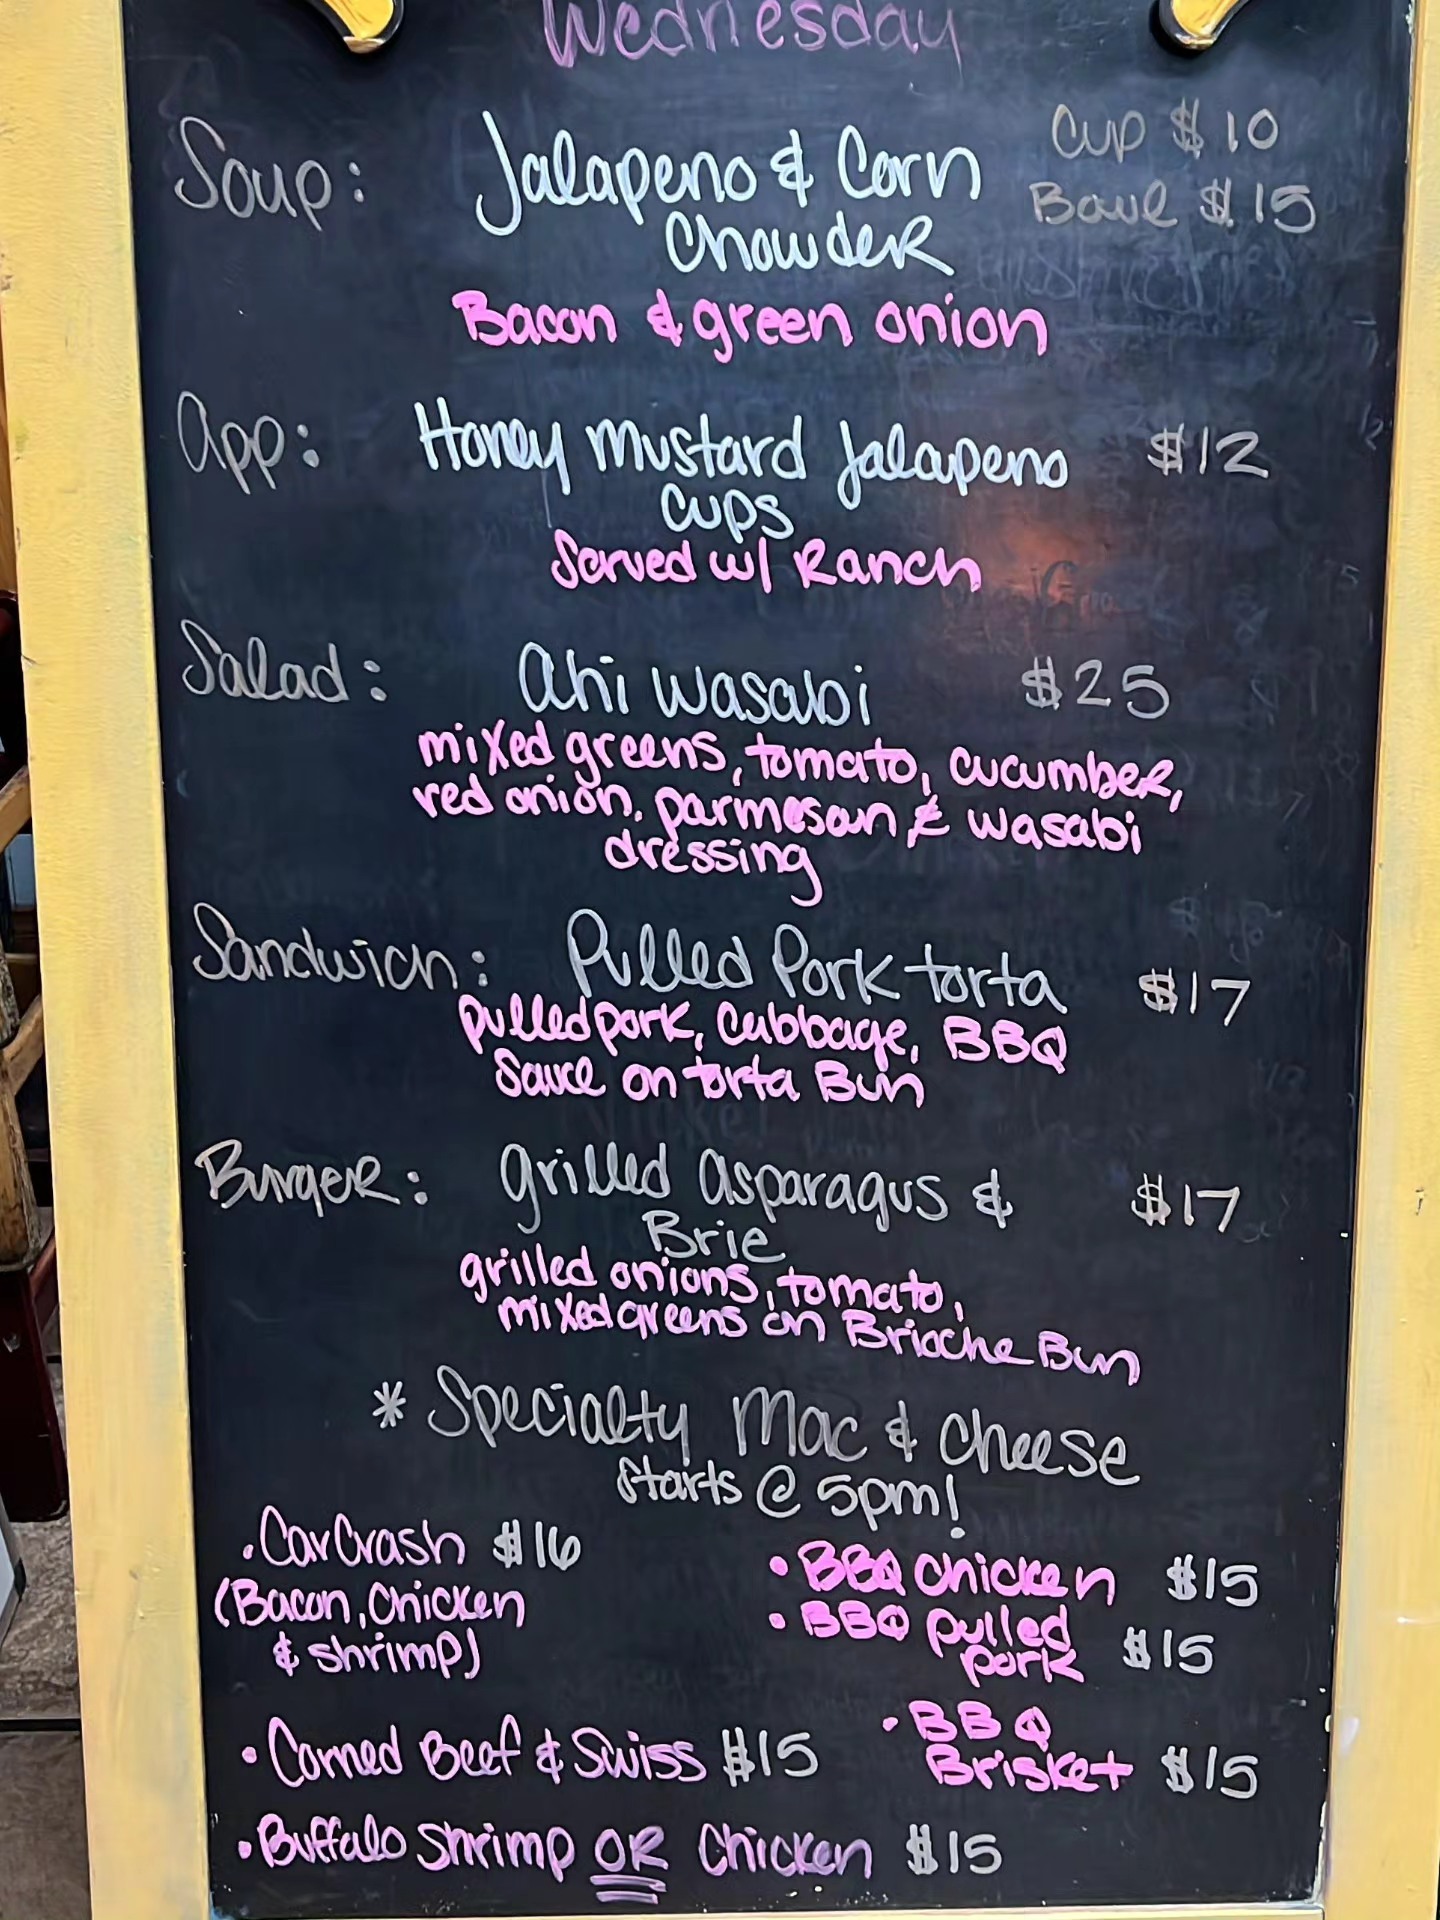 Wednesday
Soup: Jalapeno & Corn Cup $10
Chowder Bowl $15
Bacon & green onion
App: Honey Mustard Jalapeno $12
Cups
Served w/ Ranch
Salad: Ahi Wasabi $25
mixed greens, tomato, cucumber,
red onion, parmesan & wasabi
dressing
Sandwich: Pulled Pork torta $17
pulled pork, Cabbage, BBQ
Sauce on torta Bun
Burger: Grilled Asparagus & $17
Brie
grilled onions, tomato,
mixed greens on Brioche Bun
* Specialty Mac & Cheese
Starts @ 5pm!
• Car Crash $16
(Bacon, Chicken
& shrimp)
• BBQ Chicken $15
• BBQ pulled
pork $15
• Corned Beef & Swiss $15
• BBQ
Brisket $15
• Buffalo Shrimp OR Chicken $15